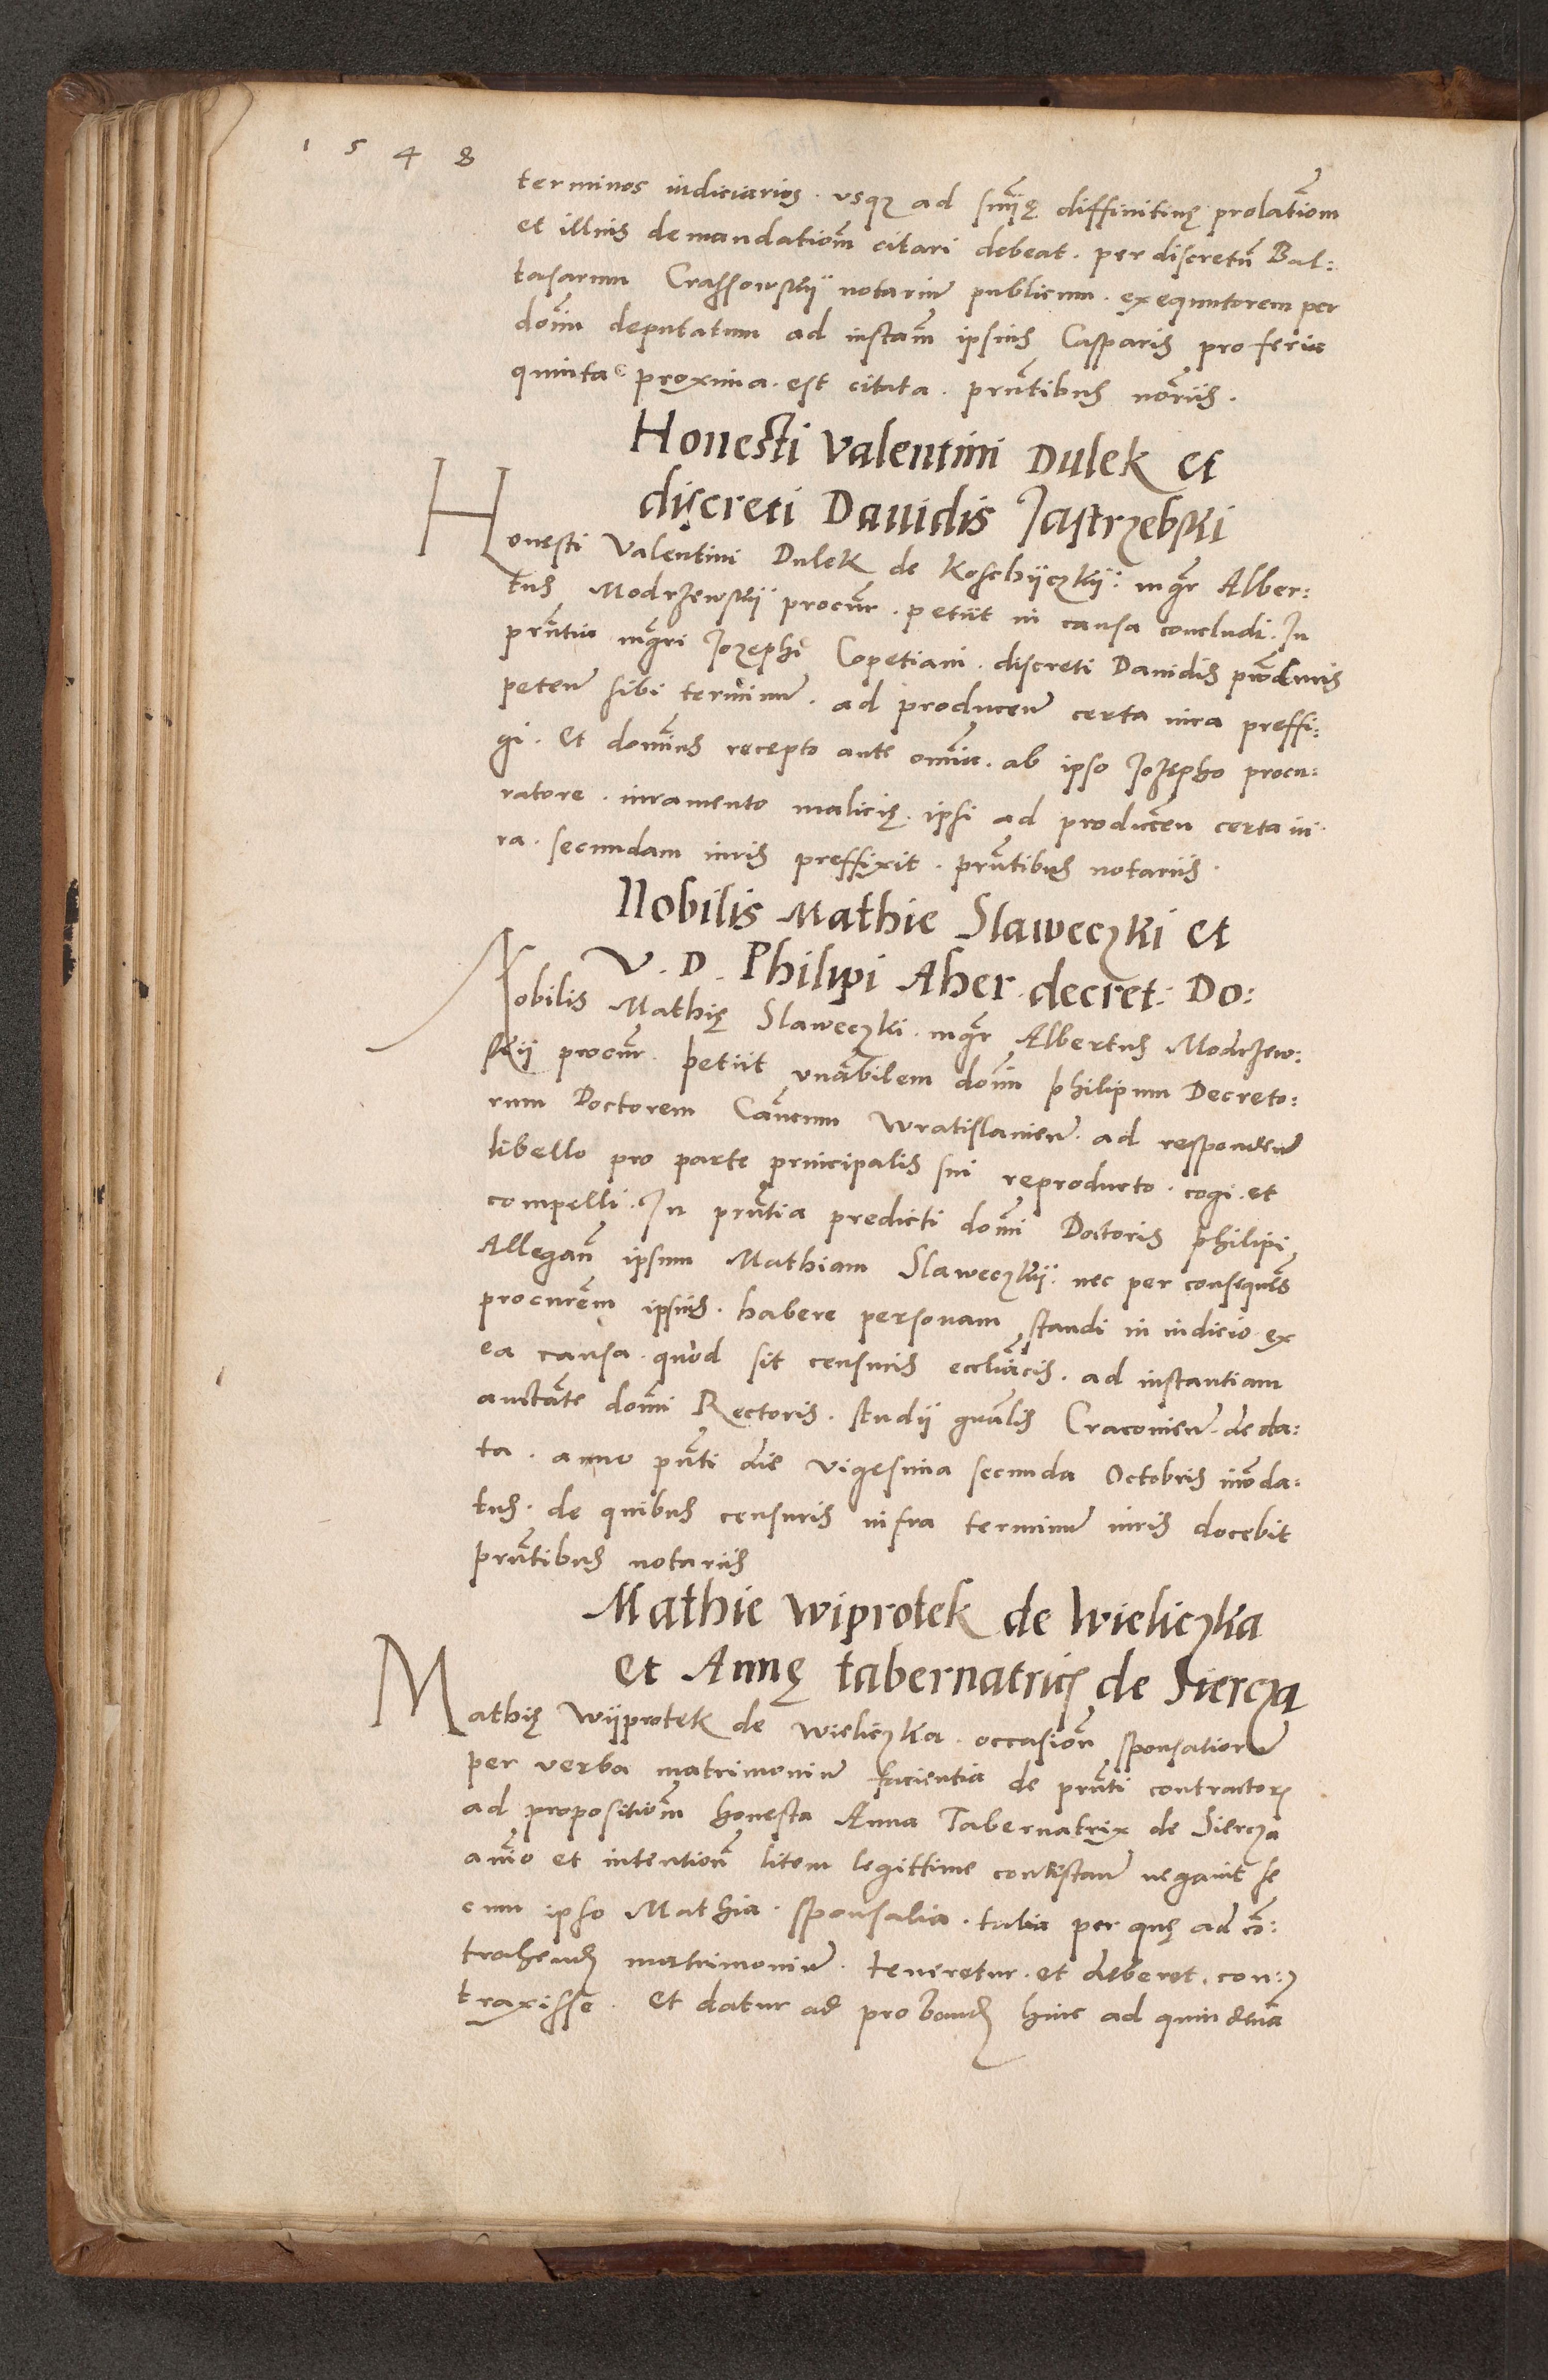 1 5 4 8
terminos iudiciarios . vsqꝫ ad sñiȩ diffinitiuȩ prolatiõm
et illius demandatiõm citari debeat . per discretũ Bal:
tasarum Crassowskÿ notariũ publicum . exequutorem per
dom̃ deputatum ad instam̃ ipsius Casparis pro feria
quinta proxima . est citata . prñtibus norĩis .
Honesti Valentini Dulek et
discreti Dauidis Jastrzebski
Honesti Valentini Dulek de Koschÿczkÿ : mgr̃ Alber:
tus Modrzewskÿ procur̃ . petiit in causa concludi . In
prñtia mgr̃i Jozephi Copetiani . discreti Dauidis procuris
peteñ sibi terminũ . ad produceñ certa iura preffi:
gi . Et dominus recepto ante omnia . ab ipso Jozepho procu:
ratore . iuramento maliciȩ . ipsi ad produceñ certa iu
ra . secundam iuris preffixit . prñtibus notariis .
Nobilis Mathie Slaweczki et
V . D . Philippi Aher decret : Do:
Nobilis Mathiȩ Slaweczki . mgr̃ Albertus Modrzew:
skÿ procur̃ . petiit vnãbilem dom̃ philipum Decreto:
rum Doctorem Cañcum Wratislauieñ . ad respondeñ
libello pro parte principalis sui reproducto . cogi . et
compelli . In prñtia predicti domĩ Doctoris philipi
Allegañ ipsum Mathiam Slaweczkÿ . nec per consequẽs
procurẽm ipsius . habere personam standi in iudicio ex
ea causa . quod sit censuris eccliãcis . ad instantiam
auctãte domĩ Rectoris . studÿ gñalis Cracouieñ . de da:
ta . anno pñti die vigesima secunda Octobris inoda:
tus . de quibus censuris infra terminũ iuris docebit
prñtibus notariis
Mathie Wiprotek de Wieliczka
et Annȩ tabernatricis de Siercza
Mathiȩ Wÿprotek de Wieliczka . occasioñ sponsatiorũ
per verba matrimoniũ facientia de prñti contractorꝫ
ad propositiõm honesta Anna Tabernatrix de Siercza
anĩo et intentioñ litem legittime contestañ negauit se
cum ipso Mathia . sponsalia . talia per quȩ ad cõ:
trahendꝫ matrimoniũ . teneretur . et deberet . con:
traxisse . Et datur ad probandꝫ hinc ad quindenã